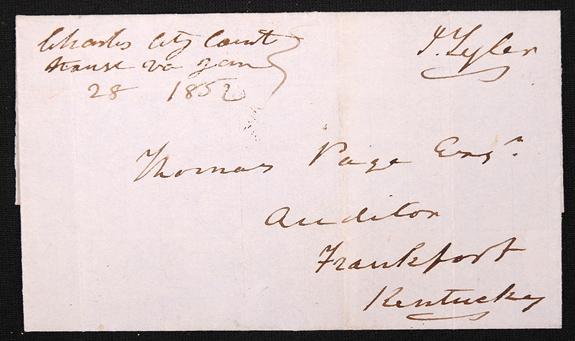 Charles City Court
House Va Jan
28 1852
J. Tyler
Thomas Page Esqr.
Auditor
Frankfort
Kentucky